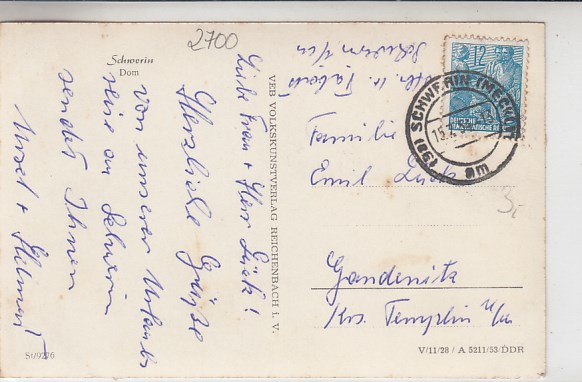 2700
Schwerin
Dom
Liebe Frau + Herr Lück!
Herzliche Grüße
von unserer Urlaubs
reise aus Schwerin
sendet Ihnen
Ursel + Helmut
St/9276
VEB VOLKSKUNSTVERLAG REICHENBACH I. V.
Schwerin
12
DEUTSCHE
DEMOKRATISCHE REP
SCHWERIN (MECKL)
am
Familie
Emil Lück
3,-
Gandenitz
Krs. Templin U/M
V/11/28 / A 5211/53/DDR